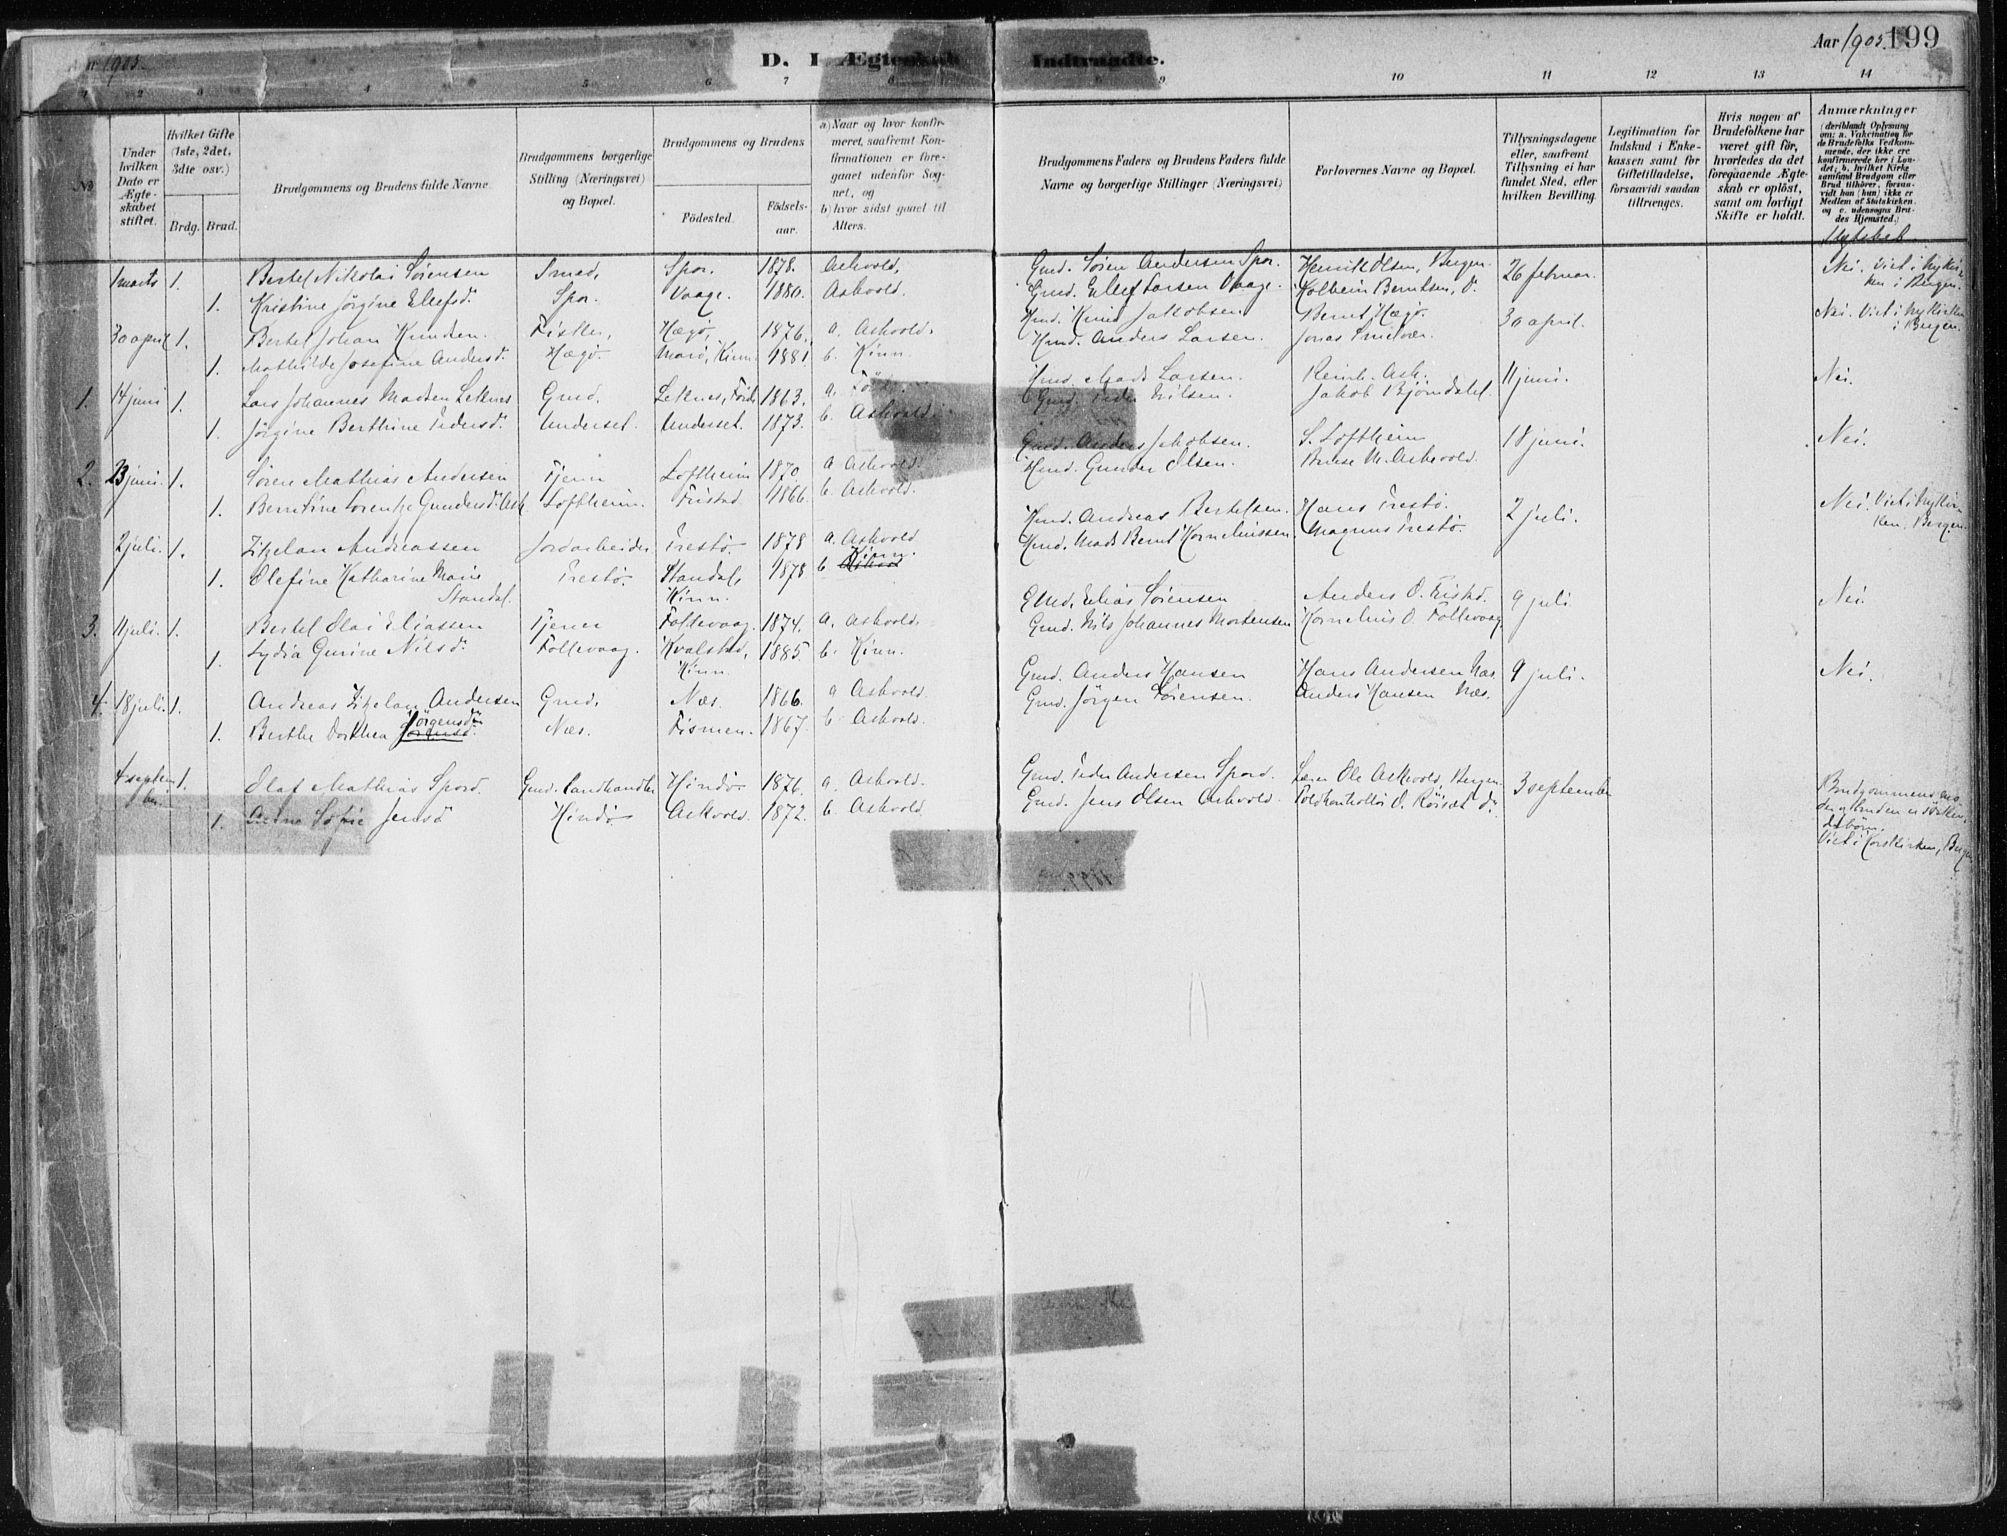 Aar 1905.
D. I Ægteskab Indtraadte.
Aar 1905. 199
1 2 3 4 5 6 7 8 9 10 11 12 13 14
No.
Under hvilken Dato er Ægteskabet stiftet.
Hvilket Gifte (1ste, 2det, 3dte osv.)
Brdg. Brud.
Brudgommens og Brudens fulde Navne.
Brudgommens borgerlige Stilling (Næringsvei) og Bopæl.
Brudgommens og Brudens
Födested. Födselsaar.
a) Naar og hvor konfirmeret, saafremt Konfirmationen er foregaaet udenfor Sognet, og
b) hvor sidst gaaet til Alters.
Brudgommens Faders og Brudens Faders fulde Navne og borgerlige Stillinger (Næringsvei)
Forlovernes Navne og Bopæl.
Tillysningsdagene eller, saafremt Tillysning ei har fundet Sted, efter hvilken Bevilling.
Legitimation for Indskud i Enkekassen samt for Giftetilladelse, forsaavidt saadan tiltrænges.
Hvis nogen af Brudefolkene har været gift för, hvorledes da det foregaaende Ægteskab er oplöst, samt om lovligt Skifte er holdt.
Anmærkninger (deriblandt Oplysning om: a. Vakcination for de Brudefolks Vedkommende, der ikke ere konfirmerede her i Landet; b. hvilket Kirkesamfund Brudgom eller Brud tilhörer, forsaavidt han (hun) ikke er Medlem af Statskirken, og c. udensogns Brudes Hjemsted.)
1 marts 1. Bertel Nikolai Sörensen Smed, Spor. 1878. Askvold, Gmd. Sören Andersen Spor. Henrik Olsen, Bergen. 26 februar. Nei. Viet i Nykirken i Bergen.
1. Kristine Jörgine Elefsd. Spor. Vaage. 1880. Askvold. Gmd. Ellef Larsen Vaage. Kolbein Berntsen, D.
30 april 1. Bertel Johan Knudsen. Fisker, Hægö, 1876. a. Askvold. Hmd. Knud Jakobsen Bernt Hægö. 30 april. Nei. Viet i Nykirken i Bergen.
1. Mathilde Josefine Andersd. Hægö. Marö, Kinn. 1881 b. Kinn. Hmd. Anders Larsen. Jonas
1. 14 juni 1. Lars Johannes Madsen Leknes Gmd. Leknes, Förde 1863. a. Hmd. Mads Larsen. Ask. 11 juni. Nei.
1. Jörgine Berthine Pedersd. Underset. Underset. 1873. b. Askvold. Gmd. Peder Nilsen. Jakob Björndalsl.
2. 23 juni. 1. Sören Mathias Andersen Tjener Loftheim 1870. a Askvold. Gmd. Anders Jakobsen. S. Loftheim 18 juni. Nei.
1. Berntine Lorentze Gundersd. Ask Loftheim. Fristad 1866. b. Askvold. Hmd. Gunder Olsen. M. Askevold.
2 juli. 1. Zikelan Andreassen Jordarbeider Prestö. 1878 a. Askvold Hmd. Andreas Bertelsen. Hans Prestö. 2 juli. Nei. Viet i Nykirken. Bergen.
1. Olefine Katharine Marie Standal. Prestö. Standal, Kinn. 1878 b Kinn. Hmd. Mads Bernt Kornelinssen. Magnus Prestö.
3. 11 juli. 1. Bertel Olai Eliassen Tjener Follevaag. 1874. a. Askvold. Gmd. Elias Sörensen Anders O. Fristad. 9 juli. Nei.
1. Lydia Gurine Nilsd. Follevaag. Kvalstad, Kinn. 1885. b. Kinn. Gmd. Nils Johannes Mortensen Kornelius O. Follevaag
4. 18 juli. 1. Andreas Zikelan Andersen Gmd. Næs. 1866. a Askvold. Gmd. Anders Hansen Hans Andersen Næs. 9 juli. Nei.
1. Berthe Dorthea Jörgensd. Næs. Fismen. 1867. b. Askvold. Gmd. Jörgen Sörensen. Anders Hansen Næs.
4 september 1. Olaf Mathias Spord. Gmd. Landhandler Hindö 1876. a. Askvold. Gmd. Peder Andersen Spord. Lærer Ole Askvold, Bergen 3 september Brudgommens moder og bruden er söskendebörn. Viet i Korskirken, Bergen
1. Anne Sofie Jensd Hindö Askvold. 1872. b. Askvold. Gmd. Jens Olsen Askvold. Toldkontrollör O. Röiset Do.